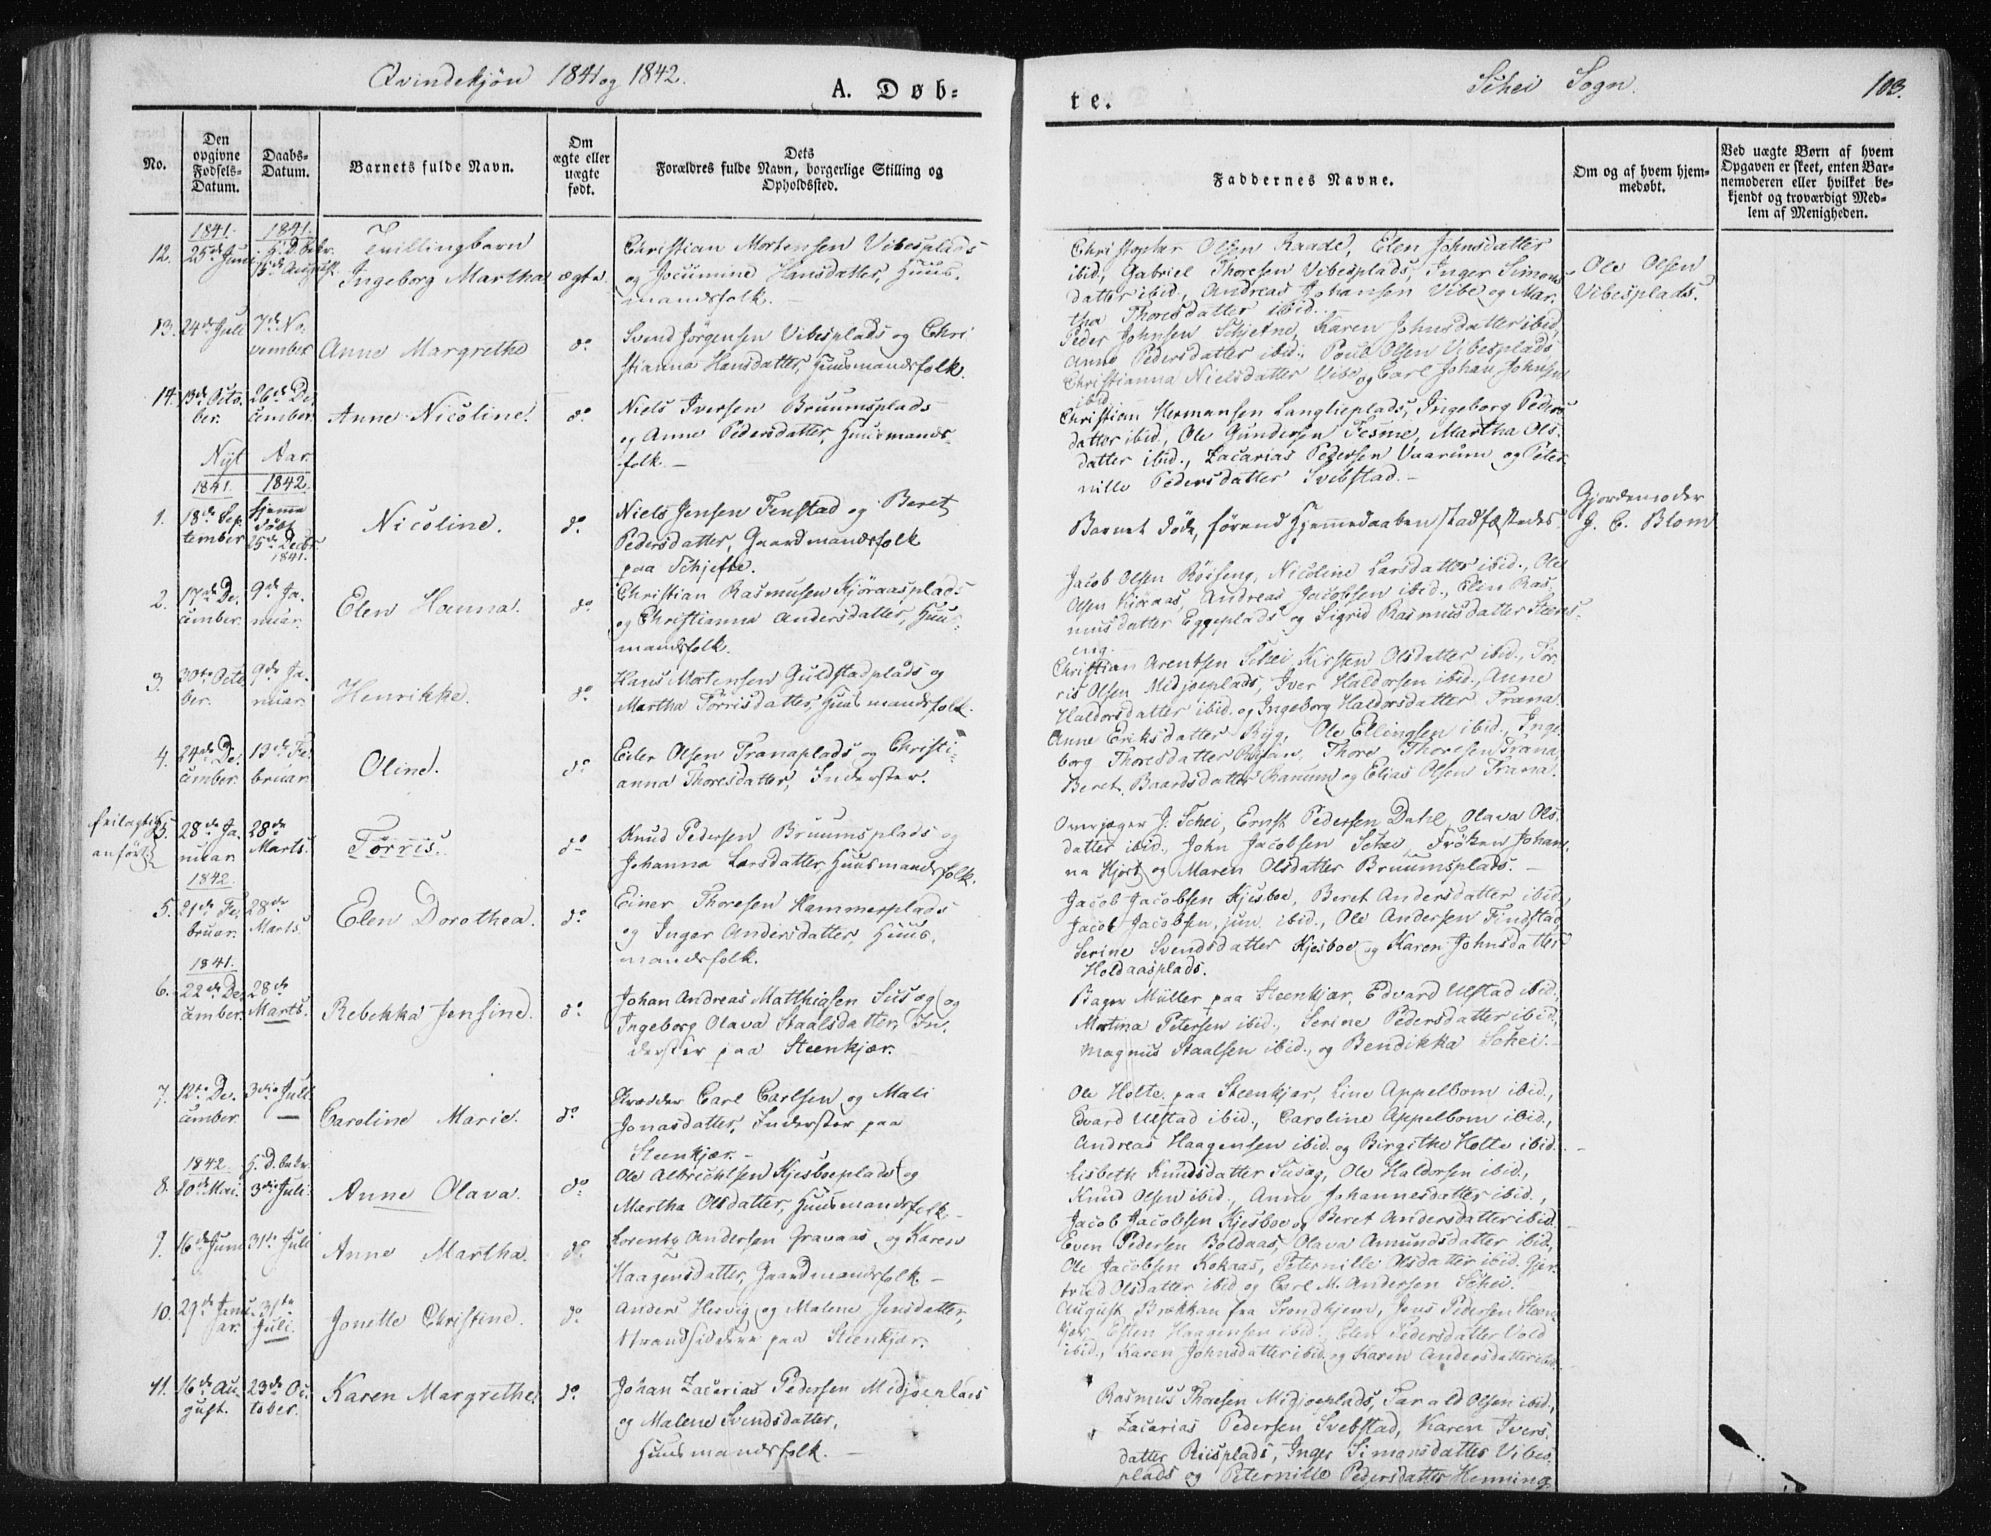 Qvindekjøn 1841 og 1842.
A. Døb-
te.
Schei Sogn.
103.
No.
Den opgivne Fødsels-Datum.
Daabs-Datum.
Barnets fulde Navn.
Om ægte eller uægte født.
Dets
Forældres fulde Navn, borgerlige Stilling og
Opholdssted.
Faddernes Navne.
Om og af hvem hjem-
medøbt.
Ved uægte Børn af hvem
Opgaven er skeet, enten Bar-
nemoderen eller hvilket be-
kjendt og troværdigt Med-
lem af Menigheden.
1841. 1841.
12. 25de Juni H. D. bekr. 15de August
Tvillingbarn
Ingeborg Martha ægte.
Christian Mortensen Vibesplads
og Jocumine Hansdatter, Huus-
mandsfolk. —
Christopher Olsen Raade, Elen Johnsdatter
ibid, Gabriel Thoresen Vibesplads, Inger Simons
datter ibid., Andreas Johansen Vibe og Mar-
tha Thoresdatter ibid. —
Ole Olsen
Vibesplads.
13. 24de Juli 7de No-
vember
Anne Margrethe do
Svend Jørgensen Vibesplads og Chri
stianna Hansdatter, Huusmandsfolk.
Peder Johnsen Schjefte, Karen Johnsdatter ibid,
Anne Pedersdatter ibid., Poul Olsen Vibesplads
Christianna Nielsdatter Vibe og Carl Johan Johnsen
ibid.
14. 13de Octo-
ber. 26de De-
cember.
Anne Nicoline. do
Niels Iversen Bruumsplads
og Anne Pedersdatter, Huusmands-
folk. —
Christian Hermansen Langlieplads, Ingeborg Peders
datter ibid., Ole Gundersen Tesme, Martha Ols-
datter ibid., Zacarias Pedersen Vaarum og Peter-
nille Pedersdatter Svebstad. —
Nyt Aar
1841. 1842.
1. 18de Sep-
tember Hjemme
døbt
25de Decbr.
1841.
Nicoline. do
Niels Jensen Fenstad og Beret
Pedersdatter, Gaardmandsfolk
paa Schjefte.
Barnet døde, førend Hjemmedaaben stadfæstedes.
Gjordemoder
G. C. Blom
2. 17de De-
cember. 9de Ja-
nuar.
Elen Hanna. do
Christian Rasmusen Kjøraasplads
og Christianna Andersdatter, Huus-
mandsfolk.
Jacob Olsen Røiseng, Nicoline Larsdatter ibid., Ole
Olsen Kjøraas, Andreas Jacobsen ibid., Elen Ras-
musdatter Eggeplads og Sigrid Rasmusdatter Steens-
eng.
3. 30te Octo-
ber. 9de Ja-
nuar.
Henrikke. do
Hans Mortensen Guldstadplads og
Martha Torrisdatter, Huusmandsfolk.
Christian Arentsen Schei, Kirsten Olsdatter ibid., Tor-
ris Olsen Midjoeplads, Iver Haldorsen ibid., Anne
Haldorsdatter ibid. og Ingeborg Haldorsdatter Trana.
4. 24de De-
cember. 13de Fe-
bruar.
Oline. do
Eiler Olsen Tranaplads og Christi-
anna Thoresdatter, Inderster.
Anne Eriksdatter Byg, Ole Ellingsen ibid., Inge-
borg Thoresdatter, Thore Thoresen Trana,
Beret Baardsdatter Ranum og Elias Olsen Trana.
feilagtig
anført
5. 28de Ja-
nuar 28de
Marts.
Torris. do
Knud Pedersen Bruumsplads og
Johanna Larsdatter, Huusmandsfolk.
Overjæger J. Schei, Ernst Pedersen Dahl, Olava Ols-
datter ibid., John Jacobsen Schei, Frøken Johan-
na Hjort og Maren Olsdatter Bruumsplads. —
1842.
5. 21de Fe-
bruar. 28de
Marts.
Elen Dorothea. do
Einer Thoresen Hammerplads
og Inger Andersdatter, Huus-
mandsfolk.
Jacob Jacobsen Kjesboe, Beret Andersdatter ibid.,
Jacob Jacobsen jun. ibid., Ole Andersen Findstad,
Serine Svendsdatter Kjesboe og Karen Johnsdatter
Holdaasplads.
1841.
6. 22de De-
cember. 28de
Marts.
Rebekka Jensine. do
Johan Andreas Matthiasen Susæg og
Ingeborg Olava Staalsdatter, In-
derster paa Steenkjær.
Bager Müller paa Steenkjær, Edvard Ulstad ibid.,
Martina Petersen ibid., Serine Pedersdatter ibid.,
Magnus Staalsen ibid., og Bendikka Schei. —
7. 12te De-
cember. 3die Juli
—
Caroline Marie. do
Skrædder Carl Carlsen og Mali
Jonasdatter, Inderster paa
Steenkjær. —
Ole Holte paa Steenkjær, Line Appelbom ibid.,
Edvard Ulstad ibid., Caroline Appelbom ibid.,
Andreas Haagensen ibid. og Birgithe Holte ibid.
1842. H. D. bekr.
8. 10de Mai. 3die Juli.
Anne Olava. do
Ole Albrichtsen Kjesboeplads og
Martha Olsdatter, Huusmandsfolk —
Lisbeth Knudsdatter Susæg, Ole Haldorsen ibid.,
Knud Olsen ibid., Anne Johannesdatter ibid.,
Jacob Jacobsen Kjesboe og Beret Andersdatter ibid.
9. 16de Juni 31te Juli
Anne Martha. do
Lorentz Andersen Gravaas og Karen
Haagensdatter, Gaardmandsfolk. —
Even Pedersen Boldaas, Olava Amundsdatter ibid.,
Ole Jacobsen Kokaas, Peternille Olsdatter ibid. Gjer-
trud Olsdatter ibid og Carl M. Andersen Schei.
10. 29de Janu-
ar. 31te
Juli.
Jonette Christine. do
Anders Hervig og Malene Jensdatter,
Strandsiddere paa Steenkjær.
August Brækkan fra Trondhjem, Jens Pedersen Steen-
kjær, Esten Haagensen ibid., Elen Pedersdatter Vold
ibid., Karen Johnsdatter ibid. og Karen Andersdatter ibid.
11. 16de Au-
gust. 23de Oc-
tober.
Karen Margrethe. do
Johan Zacarias Pedersen Midjoeplads
og Malene Svendsdatter,
Huusmandsfolk. —
Rasmus Thoresen Midjoeplads, Harald Olsen ibid.,
Zacarias Pedersen Svebstad, Karen Ivers-
datter Riisplads, Inger Simonsdatter Vibes-
plads og Peternille Pedersdatter Henning